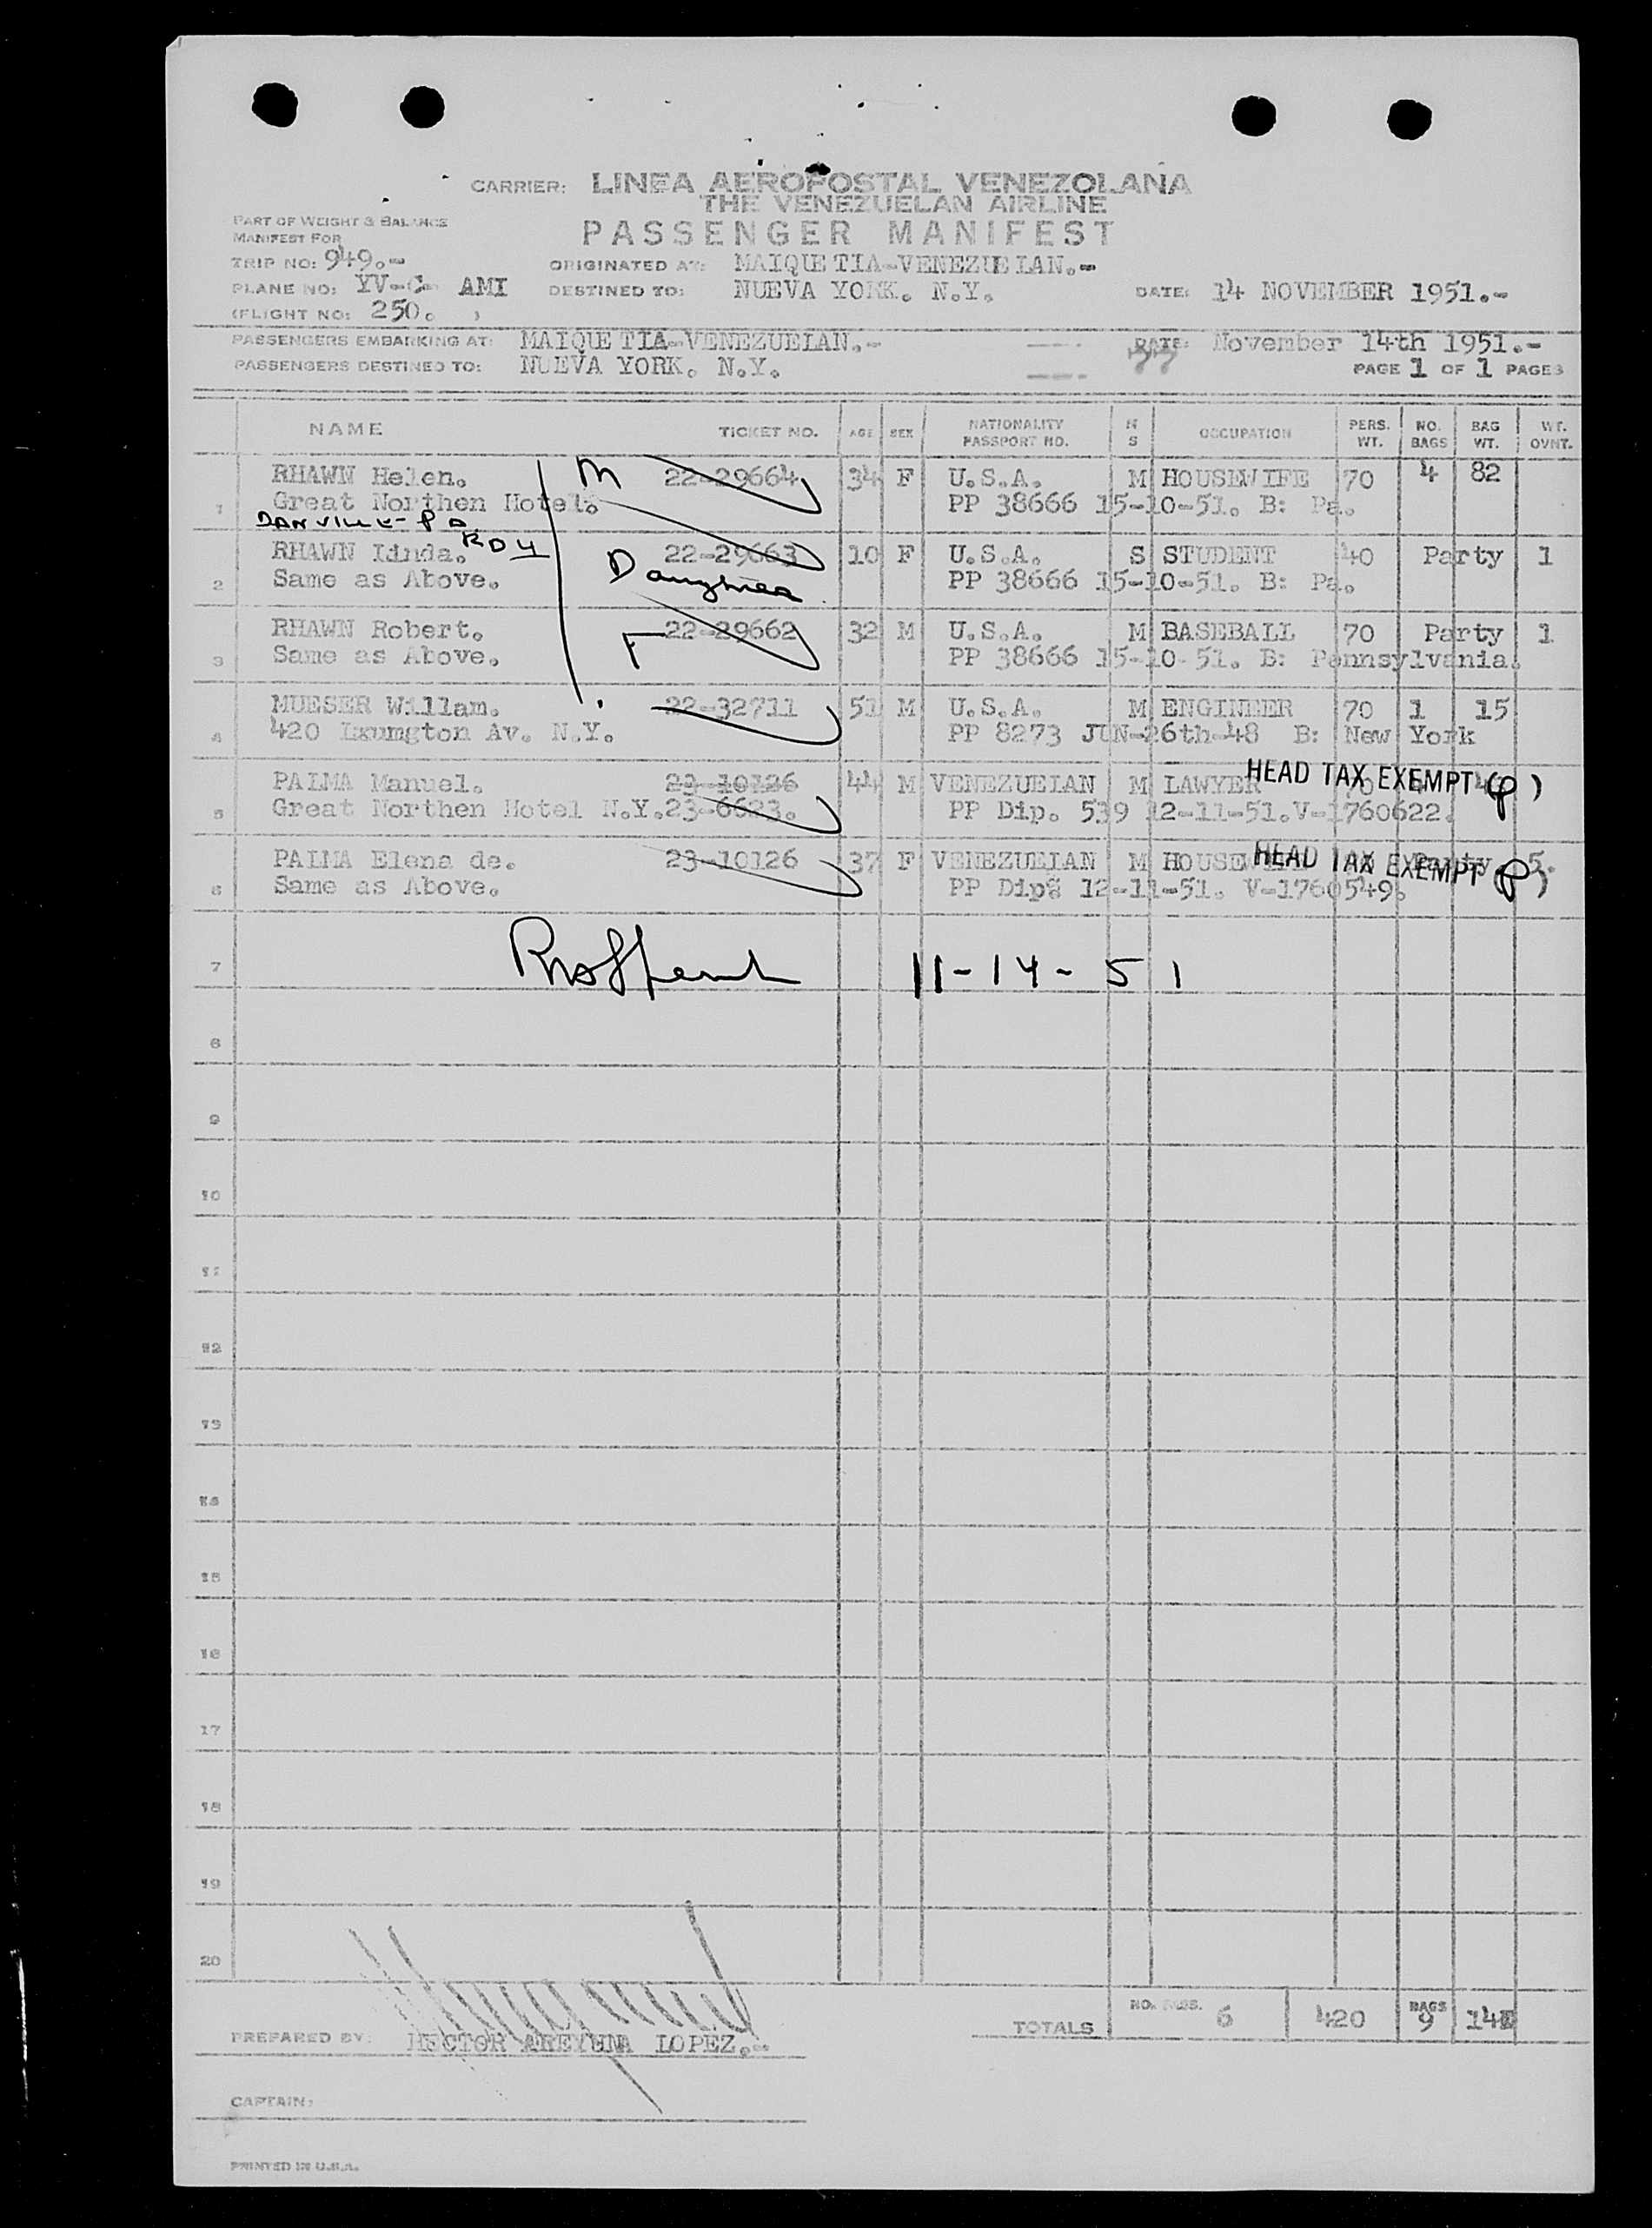 CARRIER: LINEA AEROPOSTAL VENEZOLANA
THE VENEZUELAN AIRLINE
PASSENGER MANIFEST
PART OF WEIGHT & BALANCE
MANIFEST FOR
TRIP NO: 949.- ORIGINATED AT: MAIQUETIA-VENEZUELAN.-
PLANE NO: YV-C- AMI DESTINED TO: NUEVA YORK. N.Y. DATE: 14 NOVEMBER 1951.-
(FLIGHT NO: 250. )
PASSENGERS EMBARKING AT: MAIQUETIA-VENEZUELAN.- DATE: November 14th 1951.-
PASSENGERS DESTINED TO: NUEVA YORK. N.Y. PAGE 1 OF 1 PAGES
NAME TICKET NO. AGE SEX NATIONALITY PASSPORT NO. M S OCCUPATION PERS. WT. NO. BAGS BAG WT. WT. OVNT.
RHAWN Helen. M 22-29664 34 F U.S.A. M HOUSEWIFE 70 4 82
1 Great Northen Hotel. PP 38666 15-10-51. B: Pa.
DANVILLE - Pa.
RD 4
RHAWN Linda. 22-29663 10 F U.S.A. S STUDENT 40 Party 1
2 Same as Above. Daughter PP 38666 15-10-51. B: Pa.
RHAWN Robert. F 22-29662 32 M U.S.A. M BASEBALL 70 Party 1
3 Same as Above. PP 38666 15-10-51. B: Pannsylvania.
MUESER Willam. 22-32711 51 M U.S.A. M ENGINEER 70 1 15
4 420 Lexumgton Av. N.Y. PP 8273 JUN-26th-48 B: New York
PALMA Manuel. 23-10126 44 M VENEZUELAN M LAWYER HEAD TAX EXEMPT (P)
5 Great Northen Hotel N.Y. 23-6623. PP Dip. 539 12-11-51. V-1760622.
PALMA Elena de. 23-10126 37 F VENEZUELAN M HOUSEWIFE HEAD TAX EXEMPT (P) 5.
6 Same as Above. PP Dip: 12-11-51. V-1760549.
7 11-14-51
8
9
10
11
12
13
14
15
16
17
18
19
20
TOTALS NO. PASS. 6 420 BAGS 9
PREPARED BY: HECTOR LOPEZ.-
CAPTAIN:
PRINTED IN U.S.A.